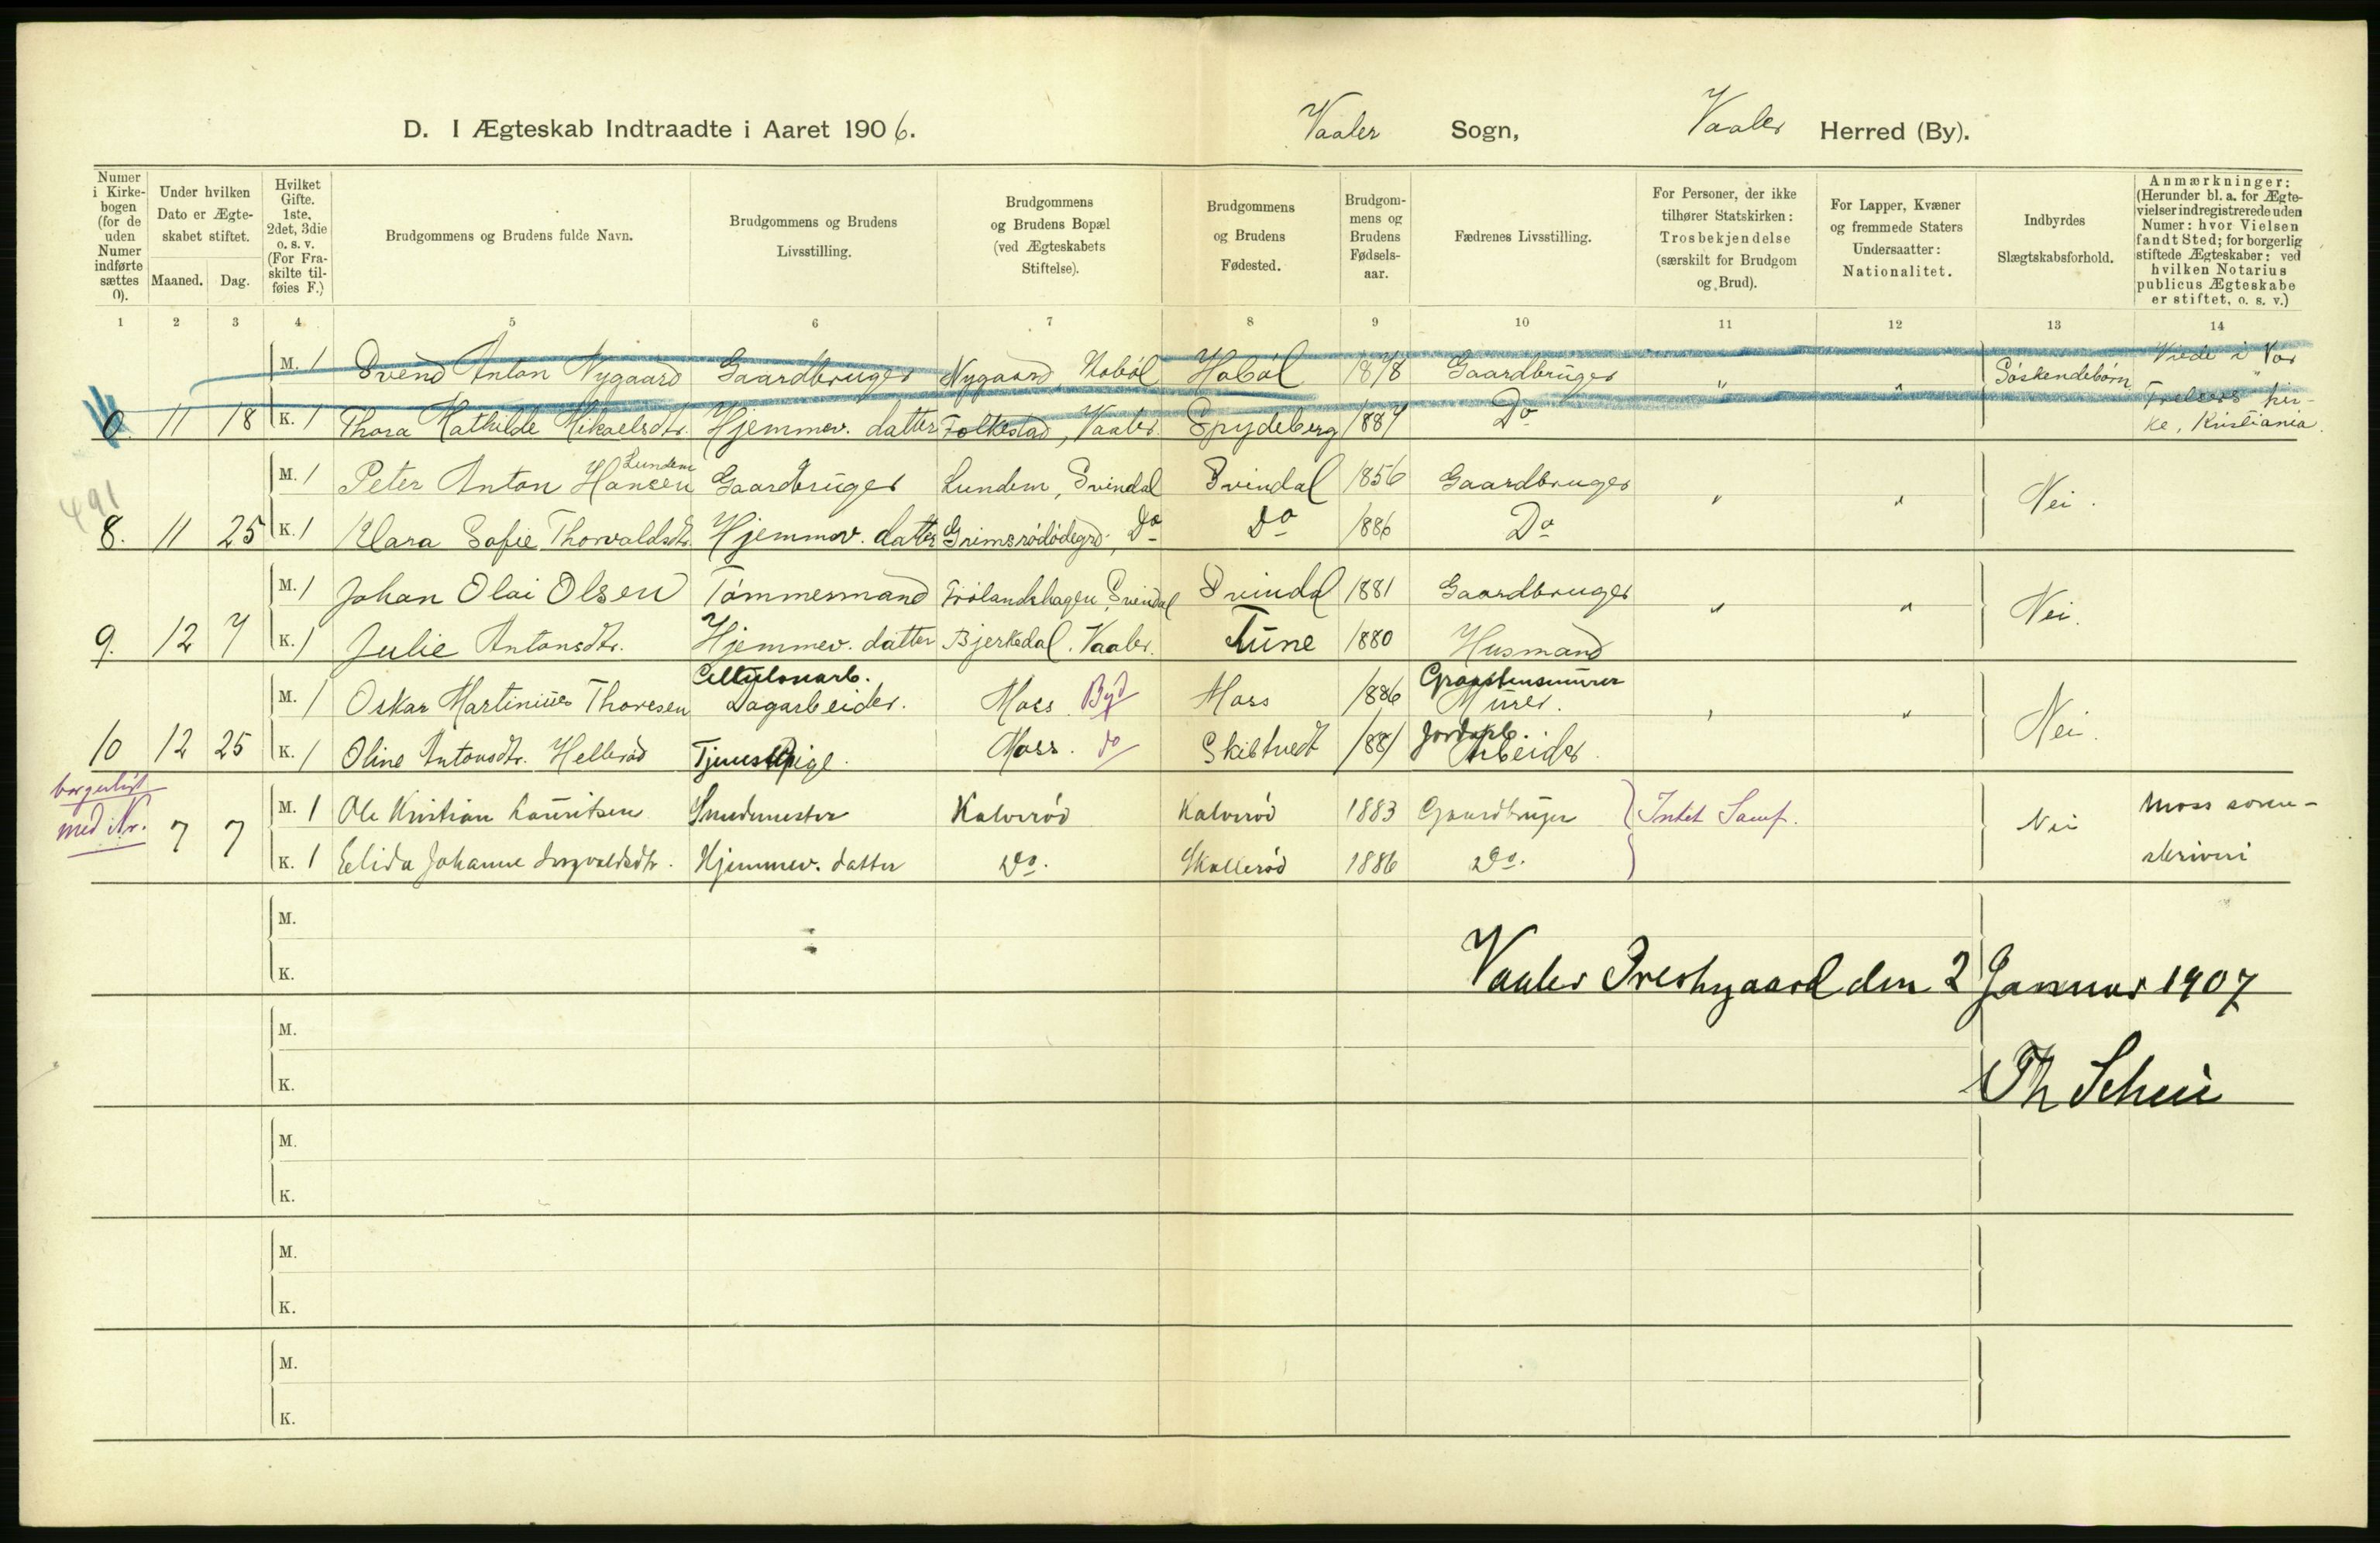 D. I Ægteskab Indtraadte i Aaret 1906. Vaaler Sogn, Vaaler Herred (By).
Numer i Kirkebogen (for de uden Numer indførte sættes 0).
Under hvilken Dato er Ægteskabet stiftet.
Maaned. Dag.
Hvilket Gifte. 1ste, 2det, 3die o. s. v. (For Fraskilte tilføies F.)
Brudgommens og Brudens fulde Navn.
Brudgommens og Brudens Livsstilling.
Brudgommens og Brudens Bopæl (ved Ægteskabets Stiftelse).
Brudgommens og Brudens Fødested.
Brudgommens og Brudens Fødselsaar.
Fædrenes Livsstilling.
For Personer, der ikke tilhører Statskirken: Trosbekjendelse (særskilt for Brudgom og Brud).
For Lapper, Kvæner og fremmede Staters Undersaatter: Nationalitet.
Indbyrdes Slægtskabsforhold.
Anmærkninger: (Herunder bl. a. for Ægtevielser indregistrerede uden Numer: hvor Vielsen fandt Sted; for borgerlig stiftede Ægteskaber: ved hvilken Notarius publicus Ægteskabe er stiftet, o. s. v.)
1 2 3 4 5 6 7 8 9 10 11 12 13 14
M. 1 Svend Anton Nygaard Gaardbruger Nygaard, Hobøl Hobøl 1878 Gaardbruger " " Søskendebørn Viede i Vor
0. 11 18 K. 1 Thora Mathilde Mikaelsdtr. Hjemmev. datter Folkestad, Vaaler. Spydeberg 1884 Do Frelsers kirke, Kristiania.
Lundem
M. 1 Peter Anton Hansen Gaardbruger Lundem, Svindal Svindal 1856 Gaardbruger " " Nei.
491
8. 11 25 K. 1 Klara Sofie Thorvaldsdtr. Hjemmev. datter Grimsrødødegrd, Do Do 1886 Do
M. 1 Johan Olai Olsen Tømmermand Frølandshagen, Svindal Svindal 1881 Gaardbruger " " Nei.
9. 12 7 K. 1 Julie Antonsdtr. Hjemmev. datter Bjerkedal. Vaaler. Tune 1880 Husmand
Cellulosearb. Graastensmurer
M. 1 Oskar Martinius Thoresen Dagarbeider. Moss. By Moss 1886 Murer. " " Nei.
Jordarb.
10 12 25 K. 1 Oline Antonsdtr. Hellerød Tjenestepige. Moss. do Skibtvedt 1881 Arbeider.
borgerligt
M. 1 Ole Kristian Lauritsen Smedmester Kalverød Kalverød 1883 Gaardbruger Intet Samf. Nei Moss soren-
med Nr. 7 7
K. 1 Elida Johanne Torgvaldsdtr. Hjemmev. datter Do. Skallerød 1886 Do. skriveri
M.
K.
Vaaler Prestegaard den 2 Januar 1907
M.
K.
Th Scheie
M.
K.
M.
K.
M.
K.